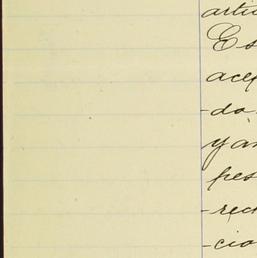 artí
Es
acep
-do
y an
pes
-rec
-cio